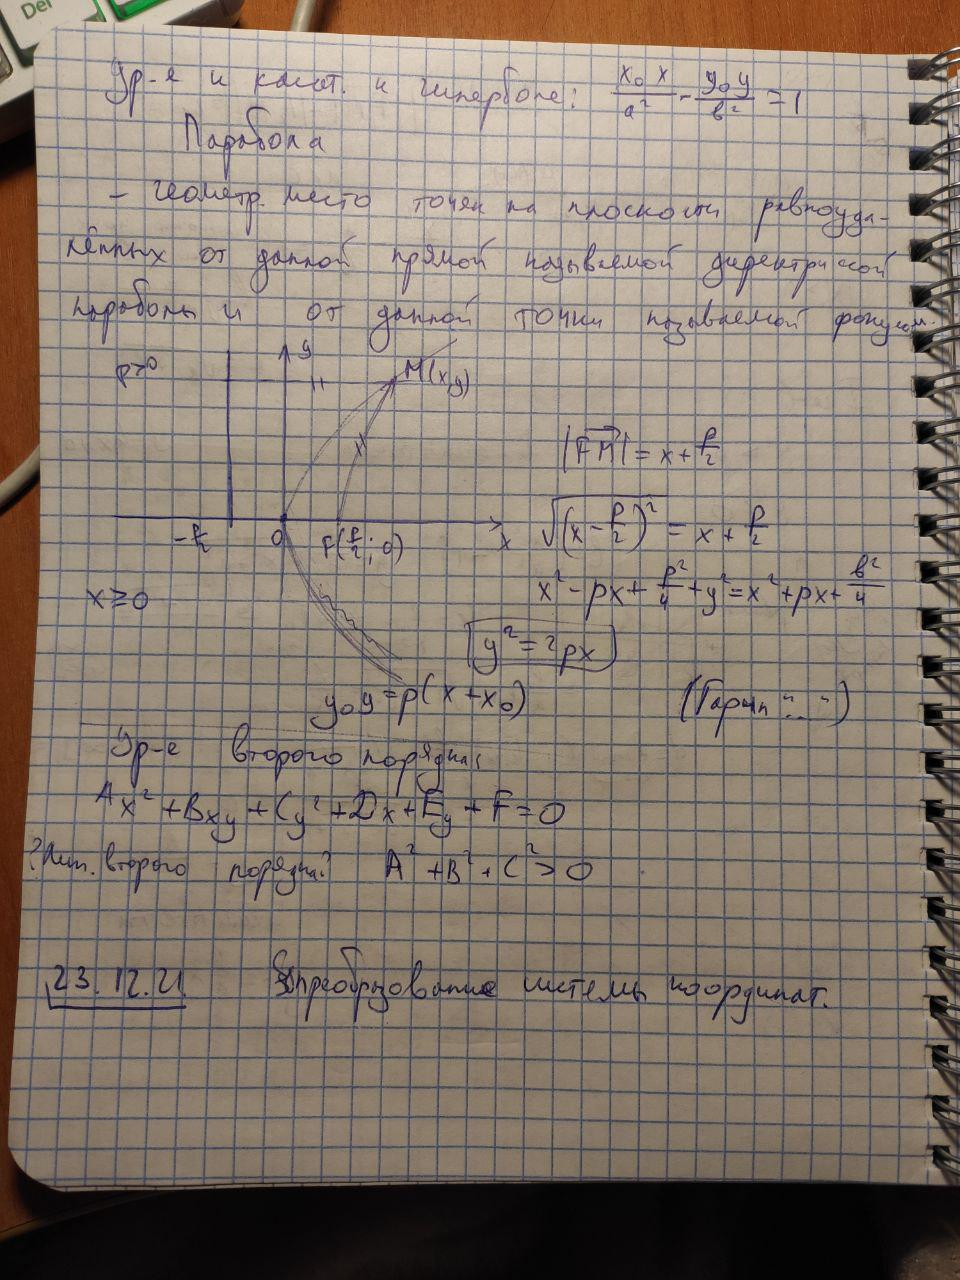 Del
Ур-е и касат. к гиперболе: x₀x/a² - y₀y/b² = 1
Парабола
- геометр. место точек на плоскости равноуда-
лённых от данной прямой называемой директрисой
параболы и от данной точки называемой фокусом.
p>0
y
M(x,y)
|FM| = x + p/2
-p/2
0
F(p/2; 0)
x
√(x - p/2)² = x + p/2
x ≥ 0
x² - px + p²/4 + y² = x² + px + b²/4
y² = 2px
y₀y = p(x + x₀)
Ур-е второго порядка:
Ax² + Bxy + Cy² + Dx + Ey + F = 0
второго порядка? A² + B² + C² > 0
23.12.21 преобразование системы координат.